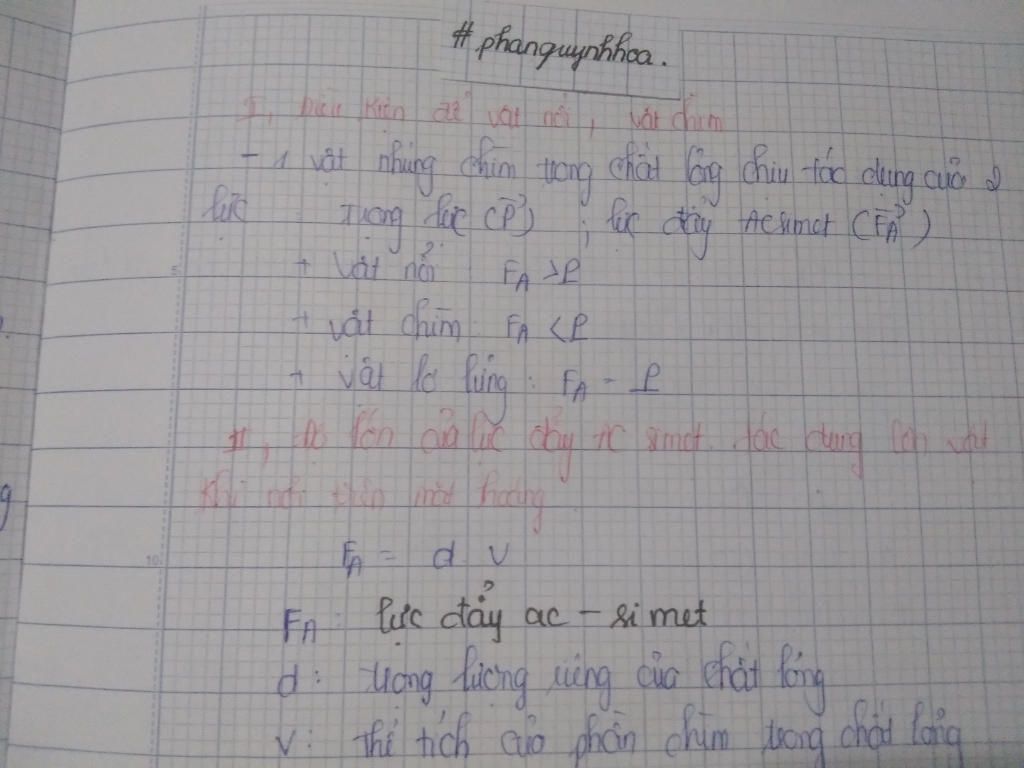 # phanquynhhoa.
I, Điều kiện để vật nổi, vật chìm
- 1 vật nhúng chìm trong chất lỏng chịu tác dụng của 2
lực trọng lực (P) ; lực đẩy Acsimet (FA)
+ Vật nổi FA > P
+ vật chìm: FA < P
+ Vật lơ lửng: FA = P
II, Độ lớn của lực đẩy Ac simet tác dụng lên vật
khi nổi trên mặt thoáng
FA = d V
FA: lực đẩy ac - si met
d: trọng lượng riêng của chất lỏng
V: thể tích của phần chìm trong chất lỏng